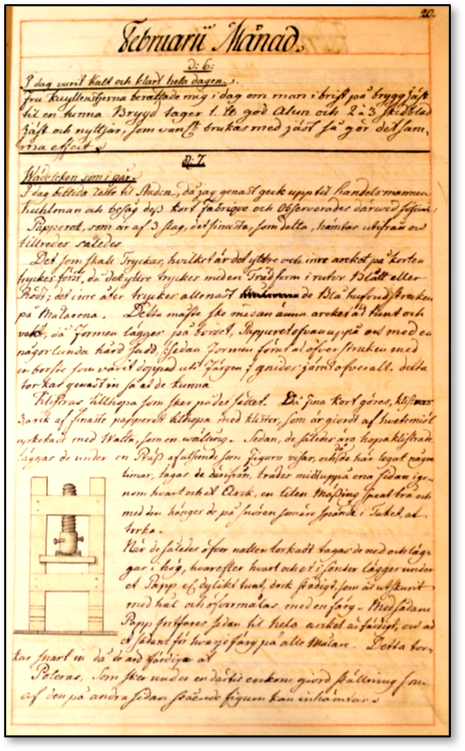 20.
Februarii Månad.
d: 6:
I dag varit kalt och klart hela dagen.
Fru berättade mig i dag om man i brist på brygg Jäst
til en tunna Brygd tager 1. god Alun och 2 a 3 skedblad
Jäst och nyttjar, som vanl. brukas med jäst så gör det sam-
ma effect.
D. 7.
Wäderleken som i går.
I dag bittida reste til Staden, då jag genast geck upp til handelsmannen
kuhlman och besåg dess kort Fabrique och Observerade därwid följande:
Papperet, som är af 3 slag, det finaste, som detta, hämtas utifrån och
tillredes således
Det som skall Tryckas, hwilket är det yttre och inre arcket på korten
tryckes först, då det yttre tryckes med en Trädform i rutor Blått eller
Rödt; det inre åter tryckes allenast de Blå hufvud strecken
på Målarena. Detta måste ske medan ännu arcket är tunt och
vått, då Formen lägges på bordet, Papperet ofvan uppå och med en
någorlunda hård sedan Formen förut är öfver struken med
en borste som varit doppad uti Färgen gnides jämt öfverallt. detta
torkas genast in så at de kunna
Klistras tillhopa som sker på det sättet. Då fina kort göres,
af finaste papperet tilhopa med klister, som är giordt af hwetemiöl
med Watn, som en wälling. Sedan, de således äro hopa klistrade
läggas de under en Präss af utseende som figuren visar, och då här legat några
timar, tagas de därifrån, trädes midt uppå ena sidan ige-
nom hwart och et Arck, en liten Messing tråd och
med den hänges de på snören som är spände i Taket, at
torka.
När de således öfver natten torkadt tagas de ned och läg-
gas i hög, hwarefter hwart och et i sönder lägges under
et Papp tunt, dock stadigt, som är utskurit
med hål och öfvermålas med en färg. Med sådane
Papp fortfares sedan til hela arcket är färdigt, och är
et sådant för hwarje färg på alla Målare. Detta tor-
kas snart in då de äro färdiga at
Poleras, som sker med en därtil enkom giord ställning som
af den på andra sidan stående figuren kan inhämtas.